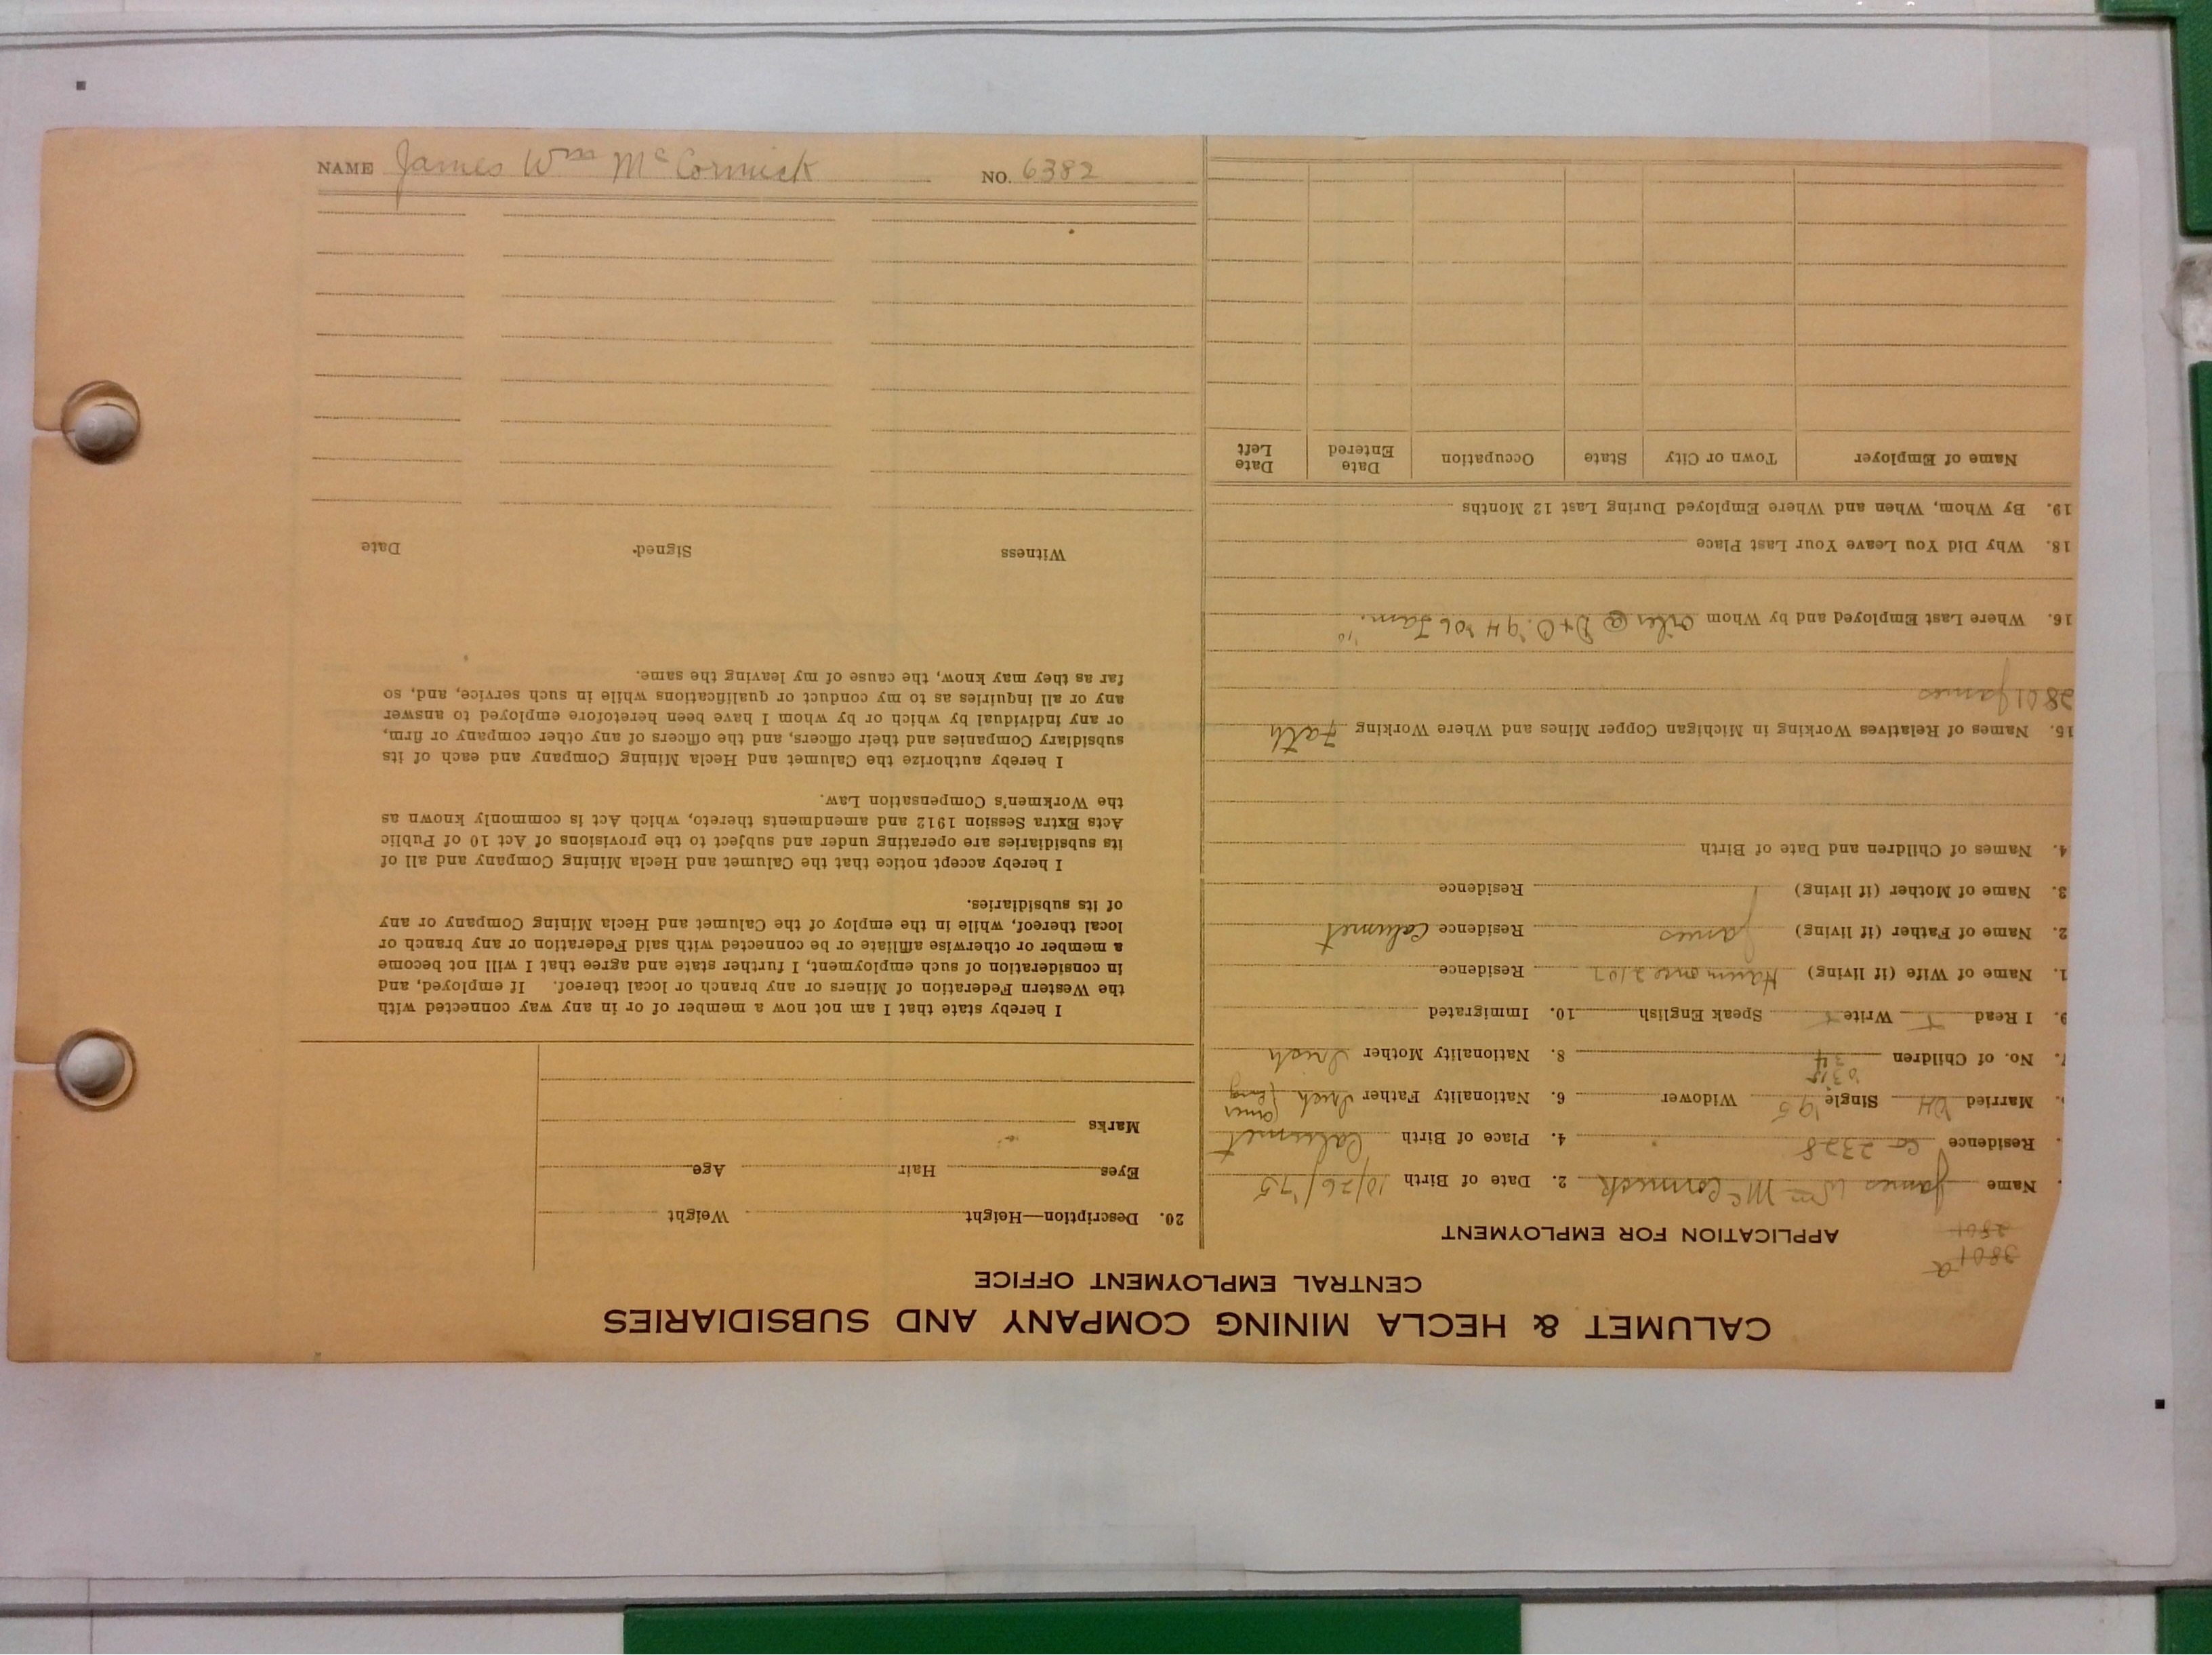 NAME James Wm McCormick NO. 6382
CALUMET & HECLA MINING COMPANY AND SUBSIDIARIES
CENTRAL EMPLOYMENT OFFICE
3801 a
2801
APPLICATION FOR EMPLOYMENT
. Name James Wm McCormick 2. Date of Birth 10/26/'75
. Residence Co 2328 4. Place of Birth Calumet
. Married Single '95 Widower 6. Nationality Father Irish (Amer Eng
7. No. of Children 34 8. Nationality Mother Irish
9. I Read Write Speak English 10. Immigrated
1. Name of Wife (if living) Residence
2. Name of Father (if living) James Residence Calumet
3. Name of Mother (if living) Residence
4. Names of Children and Date of Birth
15. Names of Relatives Working in Michigan Copper Mines and Where Working Fath
2801 James
16. Where Last Employed and by Whom Oiler @ D+O. '94 '06 Jam. '10
18. Why Did You Leave Your Last Place
19. By Whom, When and Where Employed During Last 12 Months
Name of Employer Town or City State Occupation Date Entered Date Left
20. Description—Height Weight
Eyes Hair Age
Marks
I hereby state that I am not now a member of or in any way connected with
the Western Federation of Miners or any branch or local thereof. If employed, and
in consideration of such employment, I further state and agree that I will not become
a member or otherwise affiliate or be connected with said Federation or any branch or
local thereof, while in the employ of the Calumet and Hecla Mining Company or any
of its subsidiaries.
I hereby accept notice that the Calumet and Hecla Mining Company and all of
its subsidiaries are operating under and subject to the provisions of Act 10 of Public
Acts Extra Session 1912 and amendments thereto, which Act is commonly known as
the Workmen's Compensation Law.
I hereby authorize the Calumet and Hecla Mining Company and each of its
subsidiary Companies and their officers, and the officers of any other company or firm,
or any individual by which or by whom I have been heretofore employed to answer
any or all inquiries as to my conduct or qualifications while in such service, and, so
far as they may know, the cause of my leaving the same.
Witness Signed Date